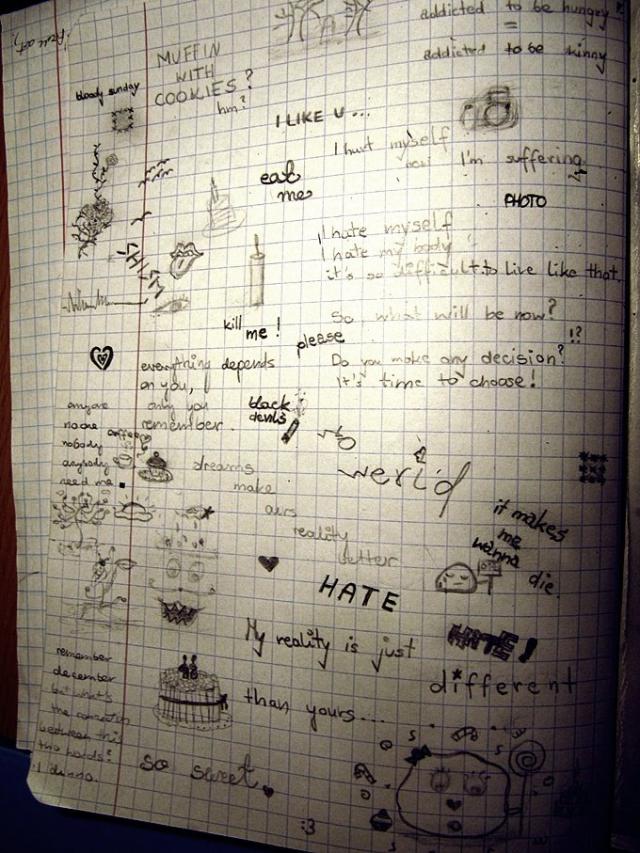 addicted to be hungry?
=
addicted to be skinny
MUFFIN
WITH
COOKIES?
hm?
bloody sunday
I LIKE U...
I hurt myself
I'm suffering
eat
me
PHOTO
I hate myself
I hate my body
it's so difficult to live like that.
So what will be now?
!?
kill me!
please
Do you make any decision?
It's time to choose!
everything depends
on you,
only you
remember.
black
devils
anyone
no one
nobody
anybody
need me.
coffee
dreams
make
ours
reality
butter
world
it makes
me
wanna
die.
HATE
HATE!
My reality is just
different
than yours...
remember
december
but what's
the connection
between this
two words?
I dunno.
so sweet
:3